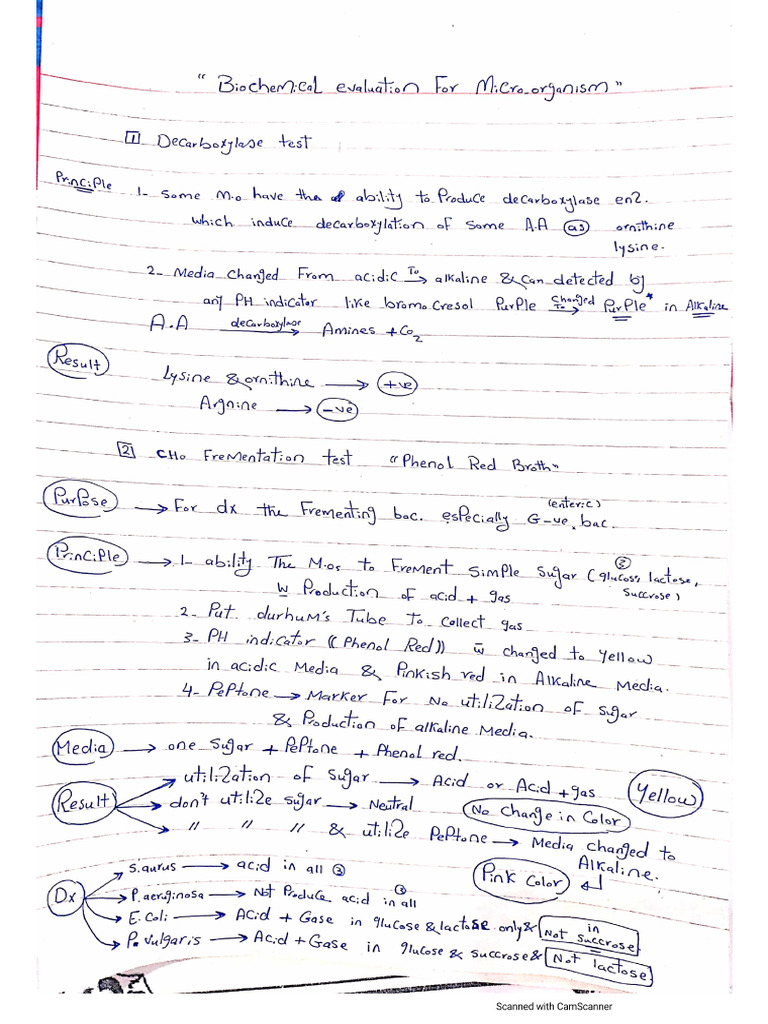 " Biochemical evaluation For Micro-organism "
1 Decarboxylase test
Principle 1- Some M.o have the ability to Produce decarboxylase enz.
which induce decarboxylation of some A.A as ornithine
lysine.
2- Media changed From acidic To → alkaline & can detected by
any PH indicator like bromocresol PurPle Changed To → PurPle* in Alkaline
A.A decarboxylase → Amines + Co2
Result
Lysine & ornithine → +ve
Argnine → -ve
2 CHo Frementation test "Phenol Red Broth"
PurPose → For dx the Frementing bac. especially G-ve (enteric) bac.
Principle → 1- ability The M.os to Frement Simple Sugar (glucose, lactose,
Succrose)
w Production of acid + gas
2- Put durhum's Tube To collect gas
3- PH indicator ((Phenol Red)) w changed to yellow
in acidic Media & Pinkish red in Alkaline Media.
4- PePtone → Marker For No utilization of sugar
& Production of alkaline Media.
Media → one sugar + PePtone + Phenol red.
Result → utilization of sugar → Acid or Acid + gas Yellow
→ don't utilize sugar → Neutral No Change in Color
→ " " " & utilize PePtone → Media changed to
Alkaline.
Pink Color
Dx → S.aurus → acid in all 3
→ P.aeruginosa → Not Produce acid in all 3
→ E.Coli → Acid + Gase in glucose & lactose only & in Not succrose
→ P.vulgaris → Acid + Gase in glucose & succrose & Not lactose
Scanned with CamScanner